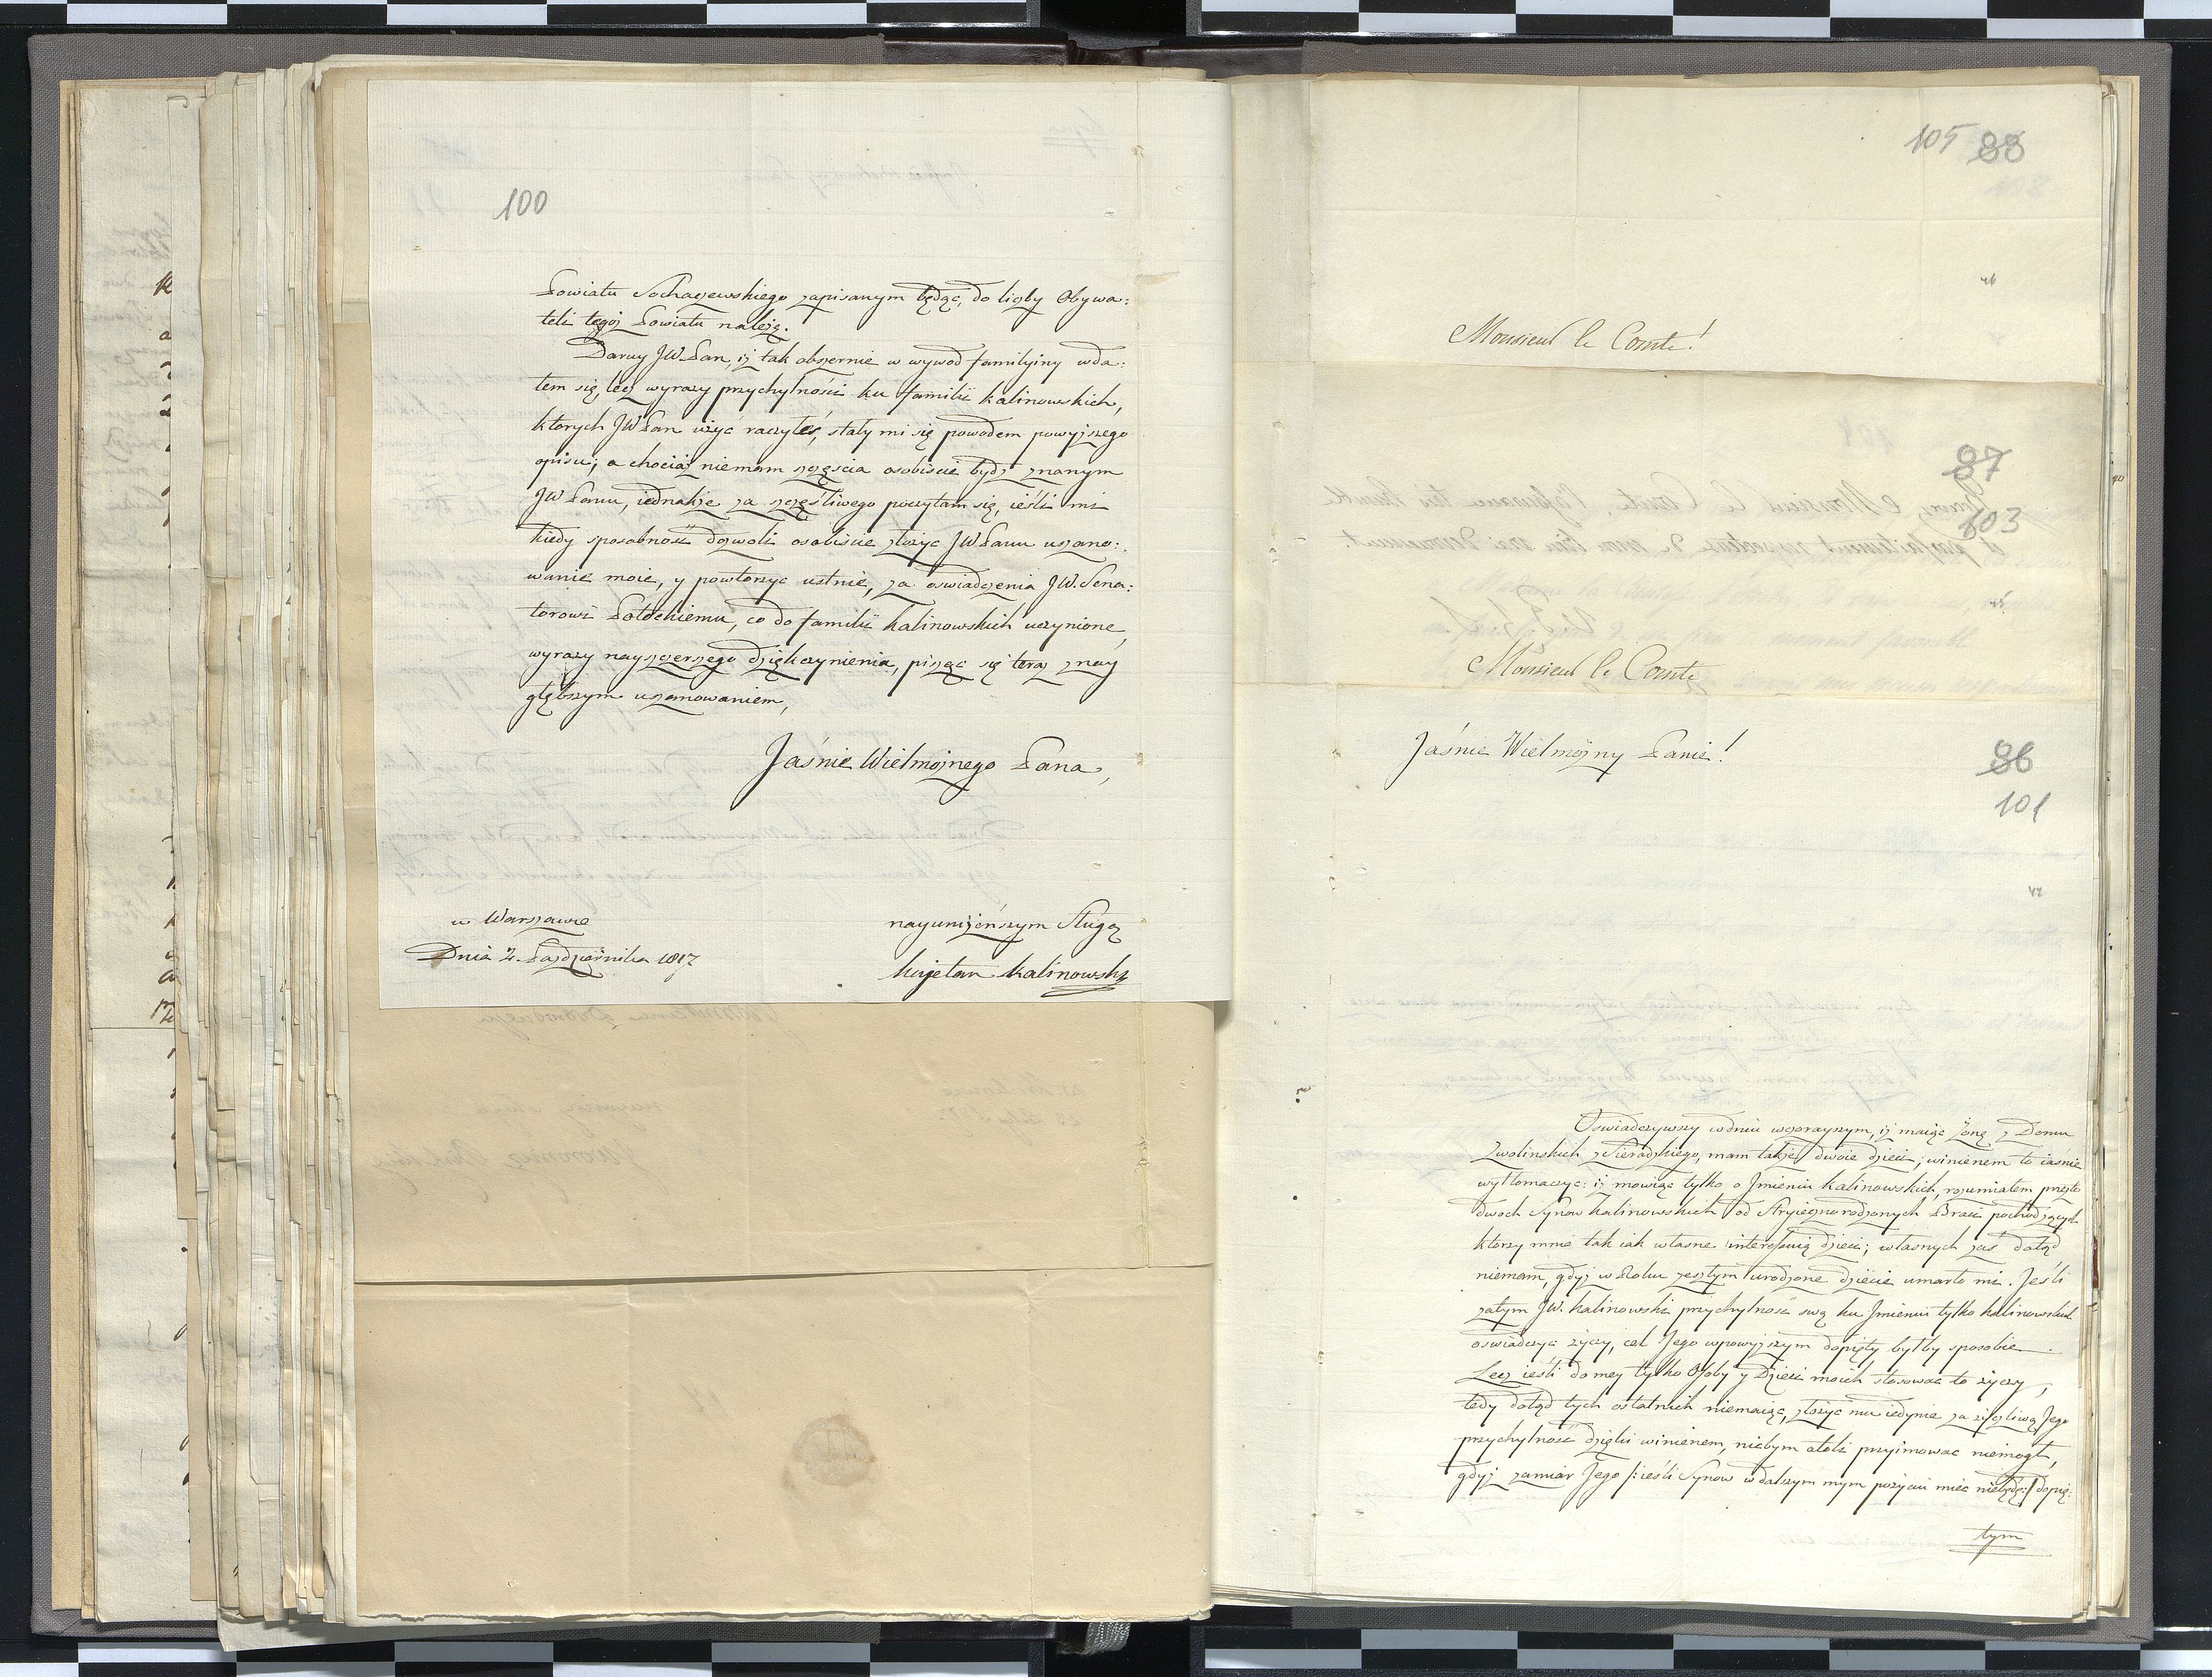 100
Powiatu Sochaczewskiego zapisanym będąc, do liczby Obywa:
teli tegoż Powiatu należę.
Daruy JWPan, iż tak obszernie w wywod familyiny wda:
łem się, lecz wyrazy przychylności ku familii Kalinowskich,
ktorych JWPan użyć raczyłeś, stały mi się powodem powyższego
opisu; a chociaż niemam szczęscia osobiscie bydz znanym
JWPanu, iednakże za szczęśliwego poczytam się, ieśli mi
kiedy sposobnosć dozwoli osobiscie złożyc JWPanu uszano:
wanie moie, y powtorzyc ustnie, za oswiadczenia JW. Sena:
torowi Potockiemu, co do familii Kalinowskich uczynione,
wyrazy nayszczerszego dziękczynienia, pisząc się teraz z nay
głębszym uszanowaniem,
Jaśnie Wielmożnego Pana,
w Warszawie
Dnia 2. Października 1817
nayuniżeńszym Sługą
Kajetan Kalinowski
105 88
Monsieur le Comte!
87
103
Monsieur le Comte
Jaśnie Wielmożny Panie!
86
101
Oswiadczywszy w dniu wczorayszym, iż maiąc Żonę z Domu
Zwolinskich z Sieradzkiego, mam także dwoie dzieci; winienem to iaśnie
wytłomaczyc: iż mowiąc tylko o Jmieniu Kalinowskich, rozumiałem przez to
dwoch Synow Kalinowskich od Stryiecznorodzonych Braci pochodzących
ktorzy mnie tak iak własne interessuią dzieci; własnych zaś dotąd
niemam, gdyż w Roku zeszłym urodzone dziecie umarło mi. Jeśli
zatym JW. Kalinowski przychylnosć swą ku Jmieniu tylko Kalinowskich
oswiadczyc życzy, cel Jego w powyższym dopięty byłby sposobie.
Lecz ieśli do mey tylko Osoby y Dzieci moich stosowac to życzy,
tedy dotąd tych ostatnich niemaiąc, złożyc mu iedynie za życzliwą Jego
przychylnosć dzięki winienem, niebym atoli przyimowac niemogł,
gdyż zamiar Jego /:ieśli Synow w dalszym mym pożyciu miec niebędę:/ dopię:
tym